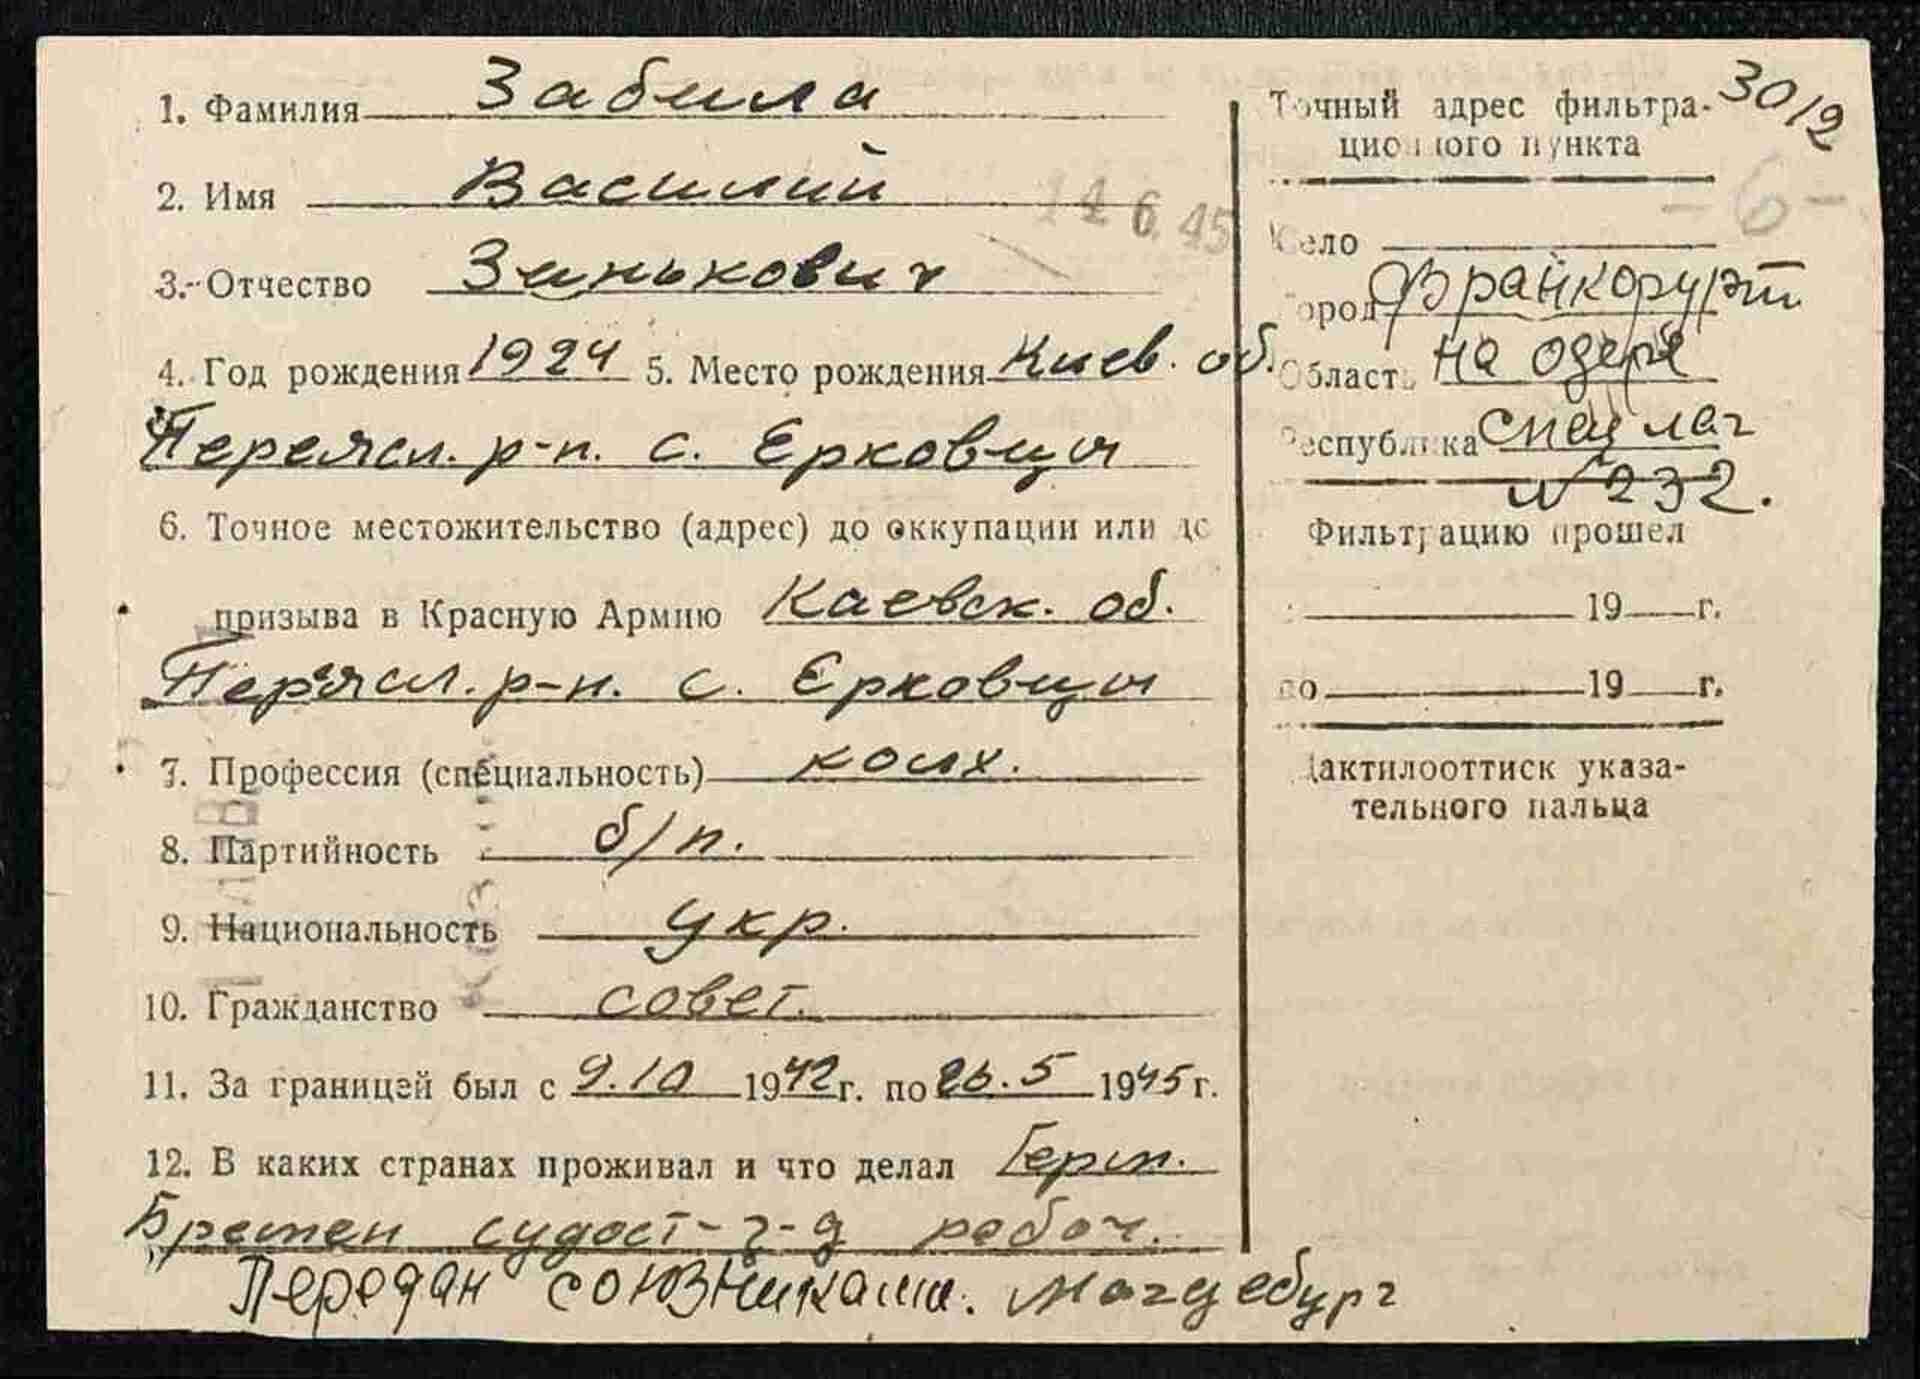 1. Фамилия Забила
2. Имя Василий
14 6. 45
3. Отчество Зинькович
4. Год рождения 1924 5. Место рождения Киев. об.
Переясл. р-н. с. Ерковцы
6. Точное местожительство (адрес) до оккупации или до
призыва в Красную Армию Каевск. об.
Переясл. р-н. с. Ерковцы
7. Профессия (специальность) колх.
8. Партийность б/п.
9. Национальность укр.
10. Гражданство совет.
11. За границей был с 9.10 1942 г. по 26.5 1945 г.
12. В каких странах проживал и что делал Герм.
Бремен судост-з-д рабоч.
Передан союзниками. Магдебург
3012
Точный адрес фильтра-
ционного пункта
- 6 -
Село
Город Франкфурт
Область на одере
Республика спец лаг
№ 232.
Фильтрацию прошел
19 г.
по 19 г.
Дактилооттиск указа-
тельного пальца